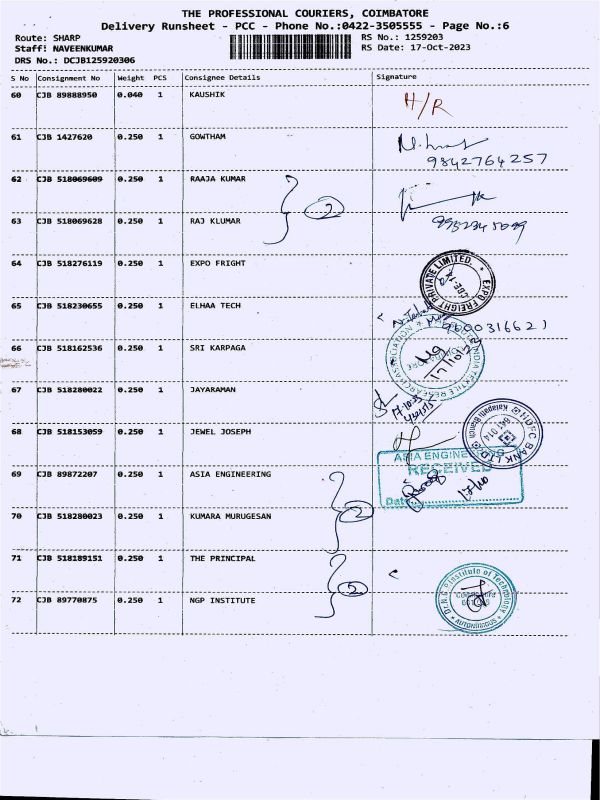 THE PROFESSIONAL COURIERS, COIMBATORE
Delivery Runsheet - PCC - Phone No.:0422-3505555 - Page No.:6
Route: SHARP
RS No.: 1259203
Staff: NAVEENKUMAR
RS Date: 17-Oct-2023
DRS No.: DCJB125920306
S No Consignment No Weight PCS Consignee Details Signature
60 CJB 89888950 0.040 1 KAUSHIK H/R
61 CJB 1427620 0.250 1 GOWTHAM
9842764257
62 CJB 518069609 0.250 1 RAAJA KUMAR
2
63 CJB 518069628 0.250 1 RAJ KLUMAR
64 CJB 518276119 0.250 1 EXPO FRIGHT
EXPO FREIGHT PRIVATE LIMITED
CBE
65 CJB 518230655 0.250 1 ELHAA TECH
9600316621
66 CJB 518162536 0.250 1 SRI KARPAGA
17/10/23
67 CJB 518280022 0.250 1 JAYARAMAN
68 CJB 518153059 0.250 1 JEWEL JOSEPH
HDFC BANK LTD
Kalapatti Branch
69 CJB 89872207 0.250 1 ASIA ENGINEERING
ASIA ENGINEERING
RECEIVED
17/10
Date
70 CJB 518280023 0.250 1 KUMARA MURUGESAN
2
71 CJB 518189151 0.250 1 THE PRINCIPAL
2
72 CJB 89770875 0.250 1 NGP INSTITUTE
Dr.N.G.P. Institute of Technology
AUTONOMOUS